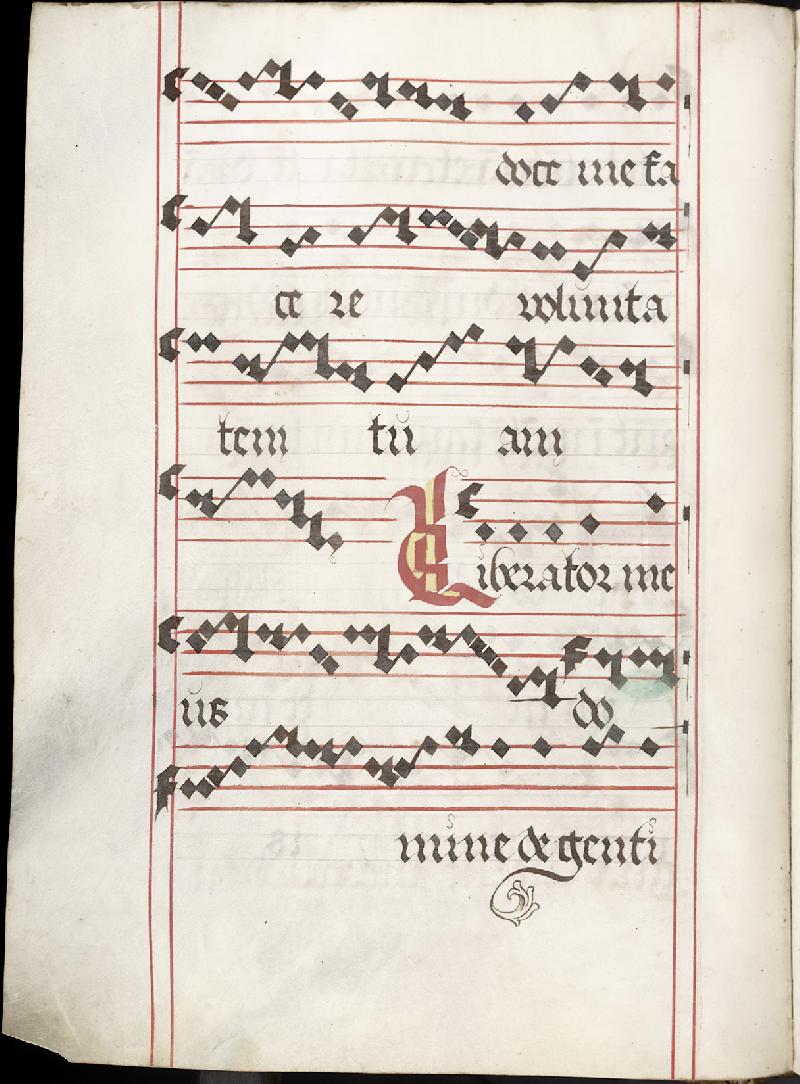 doce me fa
ce re volunta
tem tu am
Liberator me
us do
mine de genti